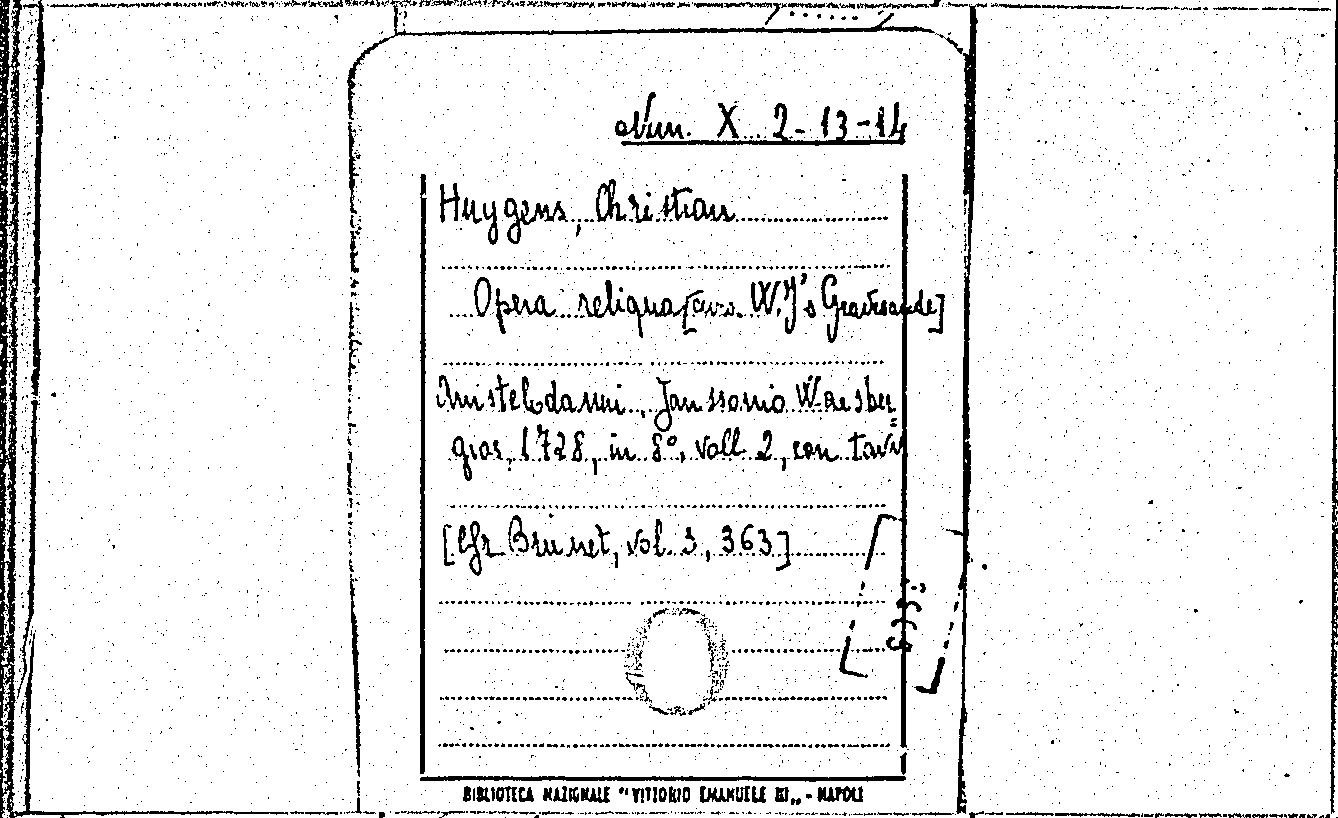 Nun. X 2-13-14
Huygens, Christian
Opera reliqua [cura W.J's Gravesande]
Amstelodami, Janssonio Waesber=
gios, 1728, in 8°, voll. 2, con tavv
[Cfr Brunet, vol. 3, 363]
BIBLIOTECA NAZIONALE "VITTORIO EMANUELE III„ - NAPOLI